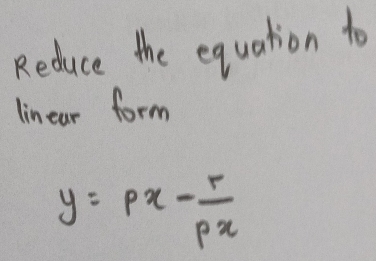 Reduce the equation to
linear form
y = px - r/px